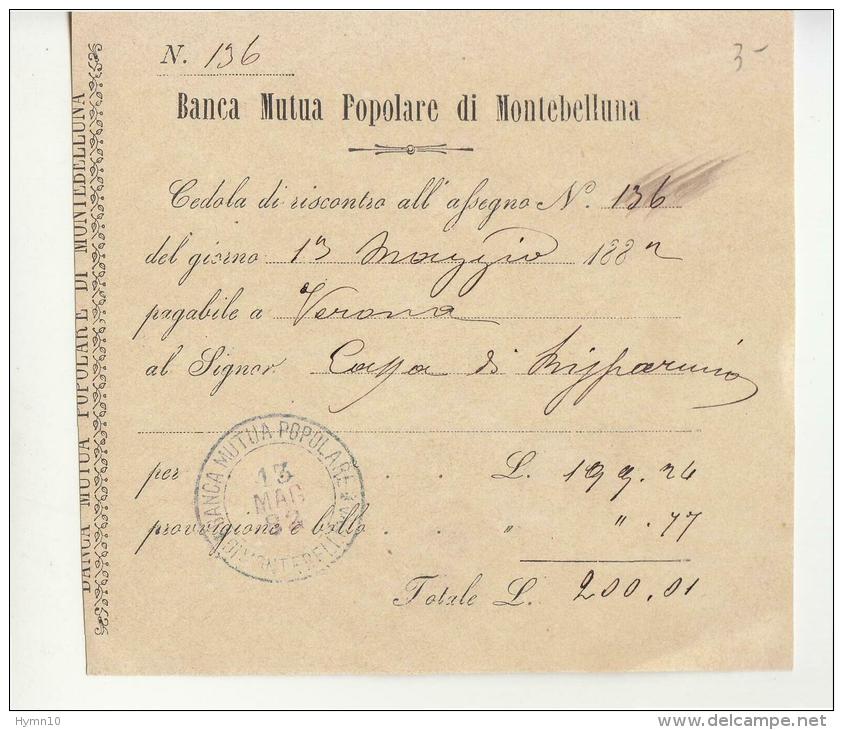 N. 136
3-
Banca Mutua Popolare di Montebelluna
Cedola di riscontro all'assegno N.° 136
del giorno 13 Maggio 1882
pagabile a Verona
al Signor Cassa di Risparmio
per . . L. 199.24
provvigione e bollo . . " " .77
Totale L. 200.01
BANCA MUTUA POPOLARE DI MONTEBELLUNA
BANCA MUTUA POPOLARE
13
MAG
82
DI MONTEBELLUNA
Hymn10
www.delcampe.net